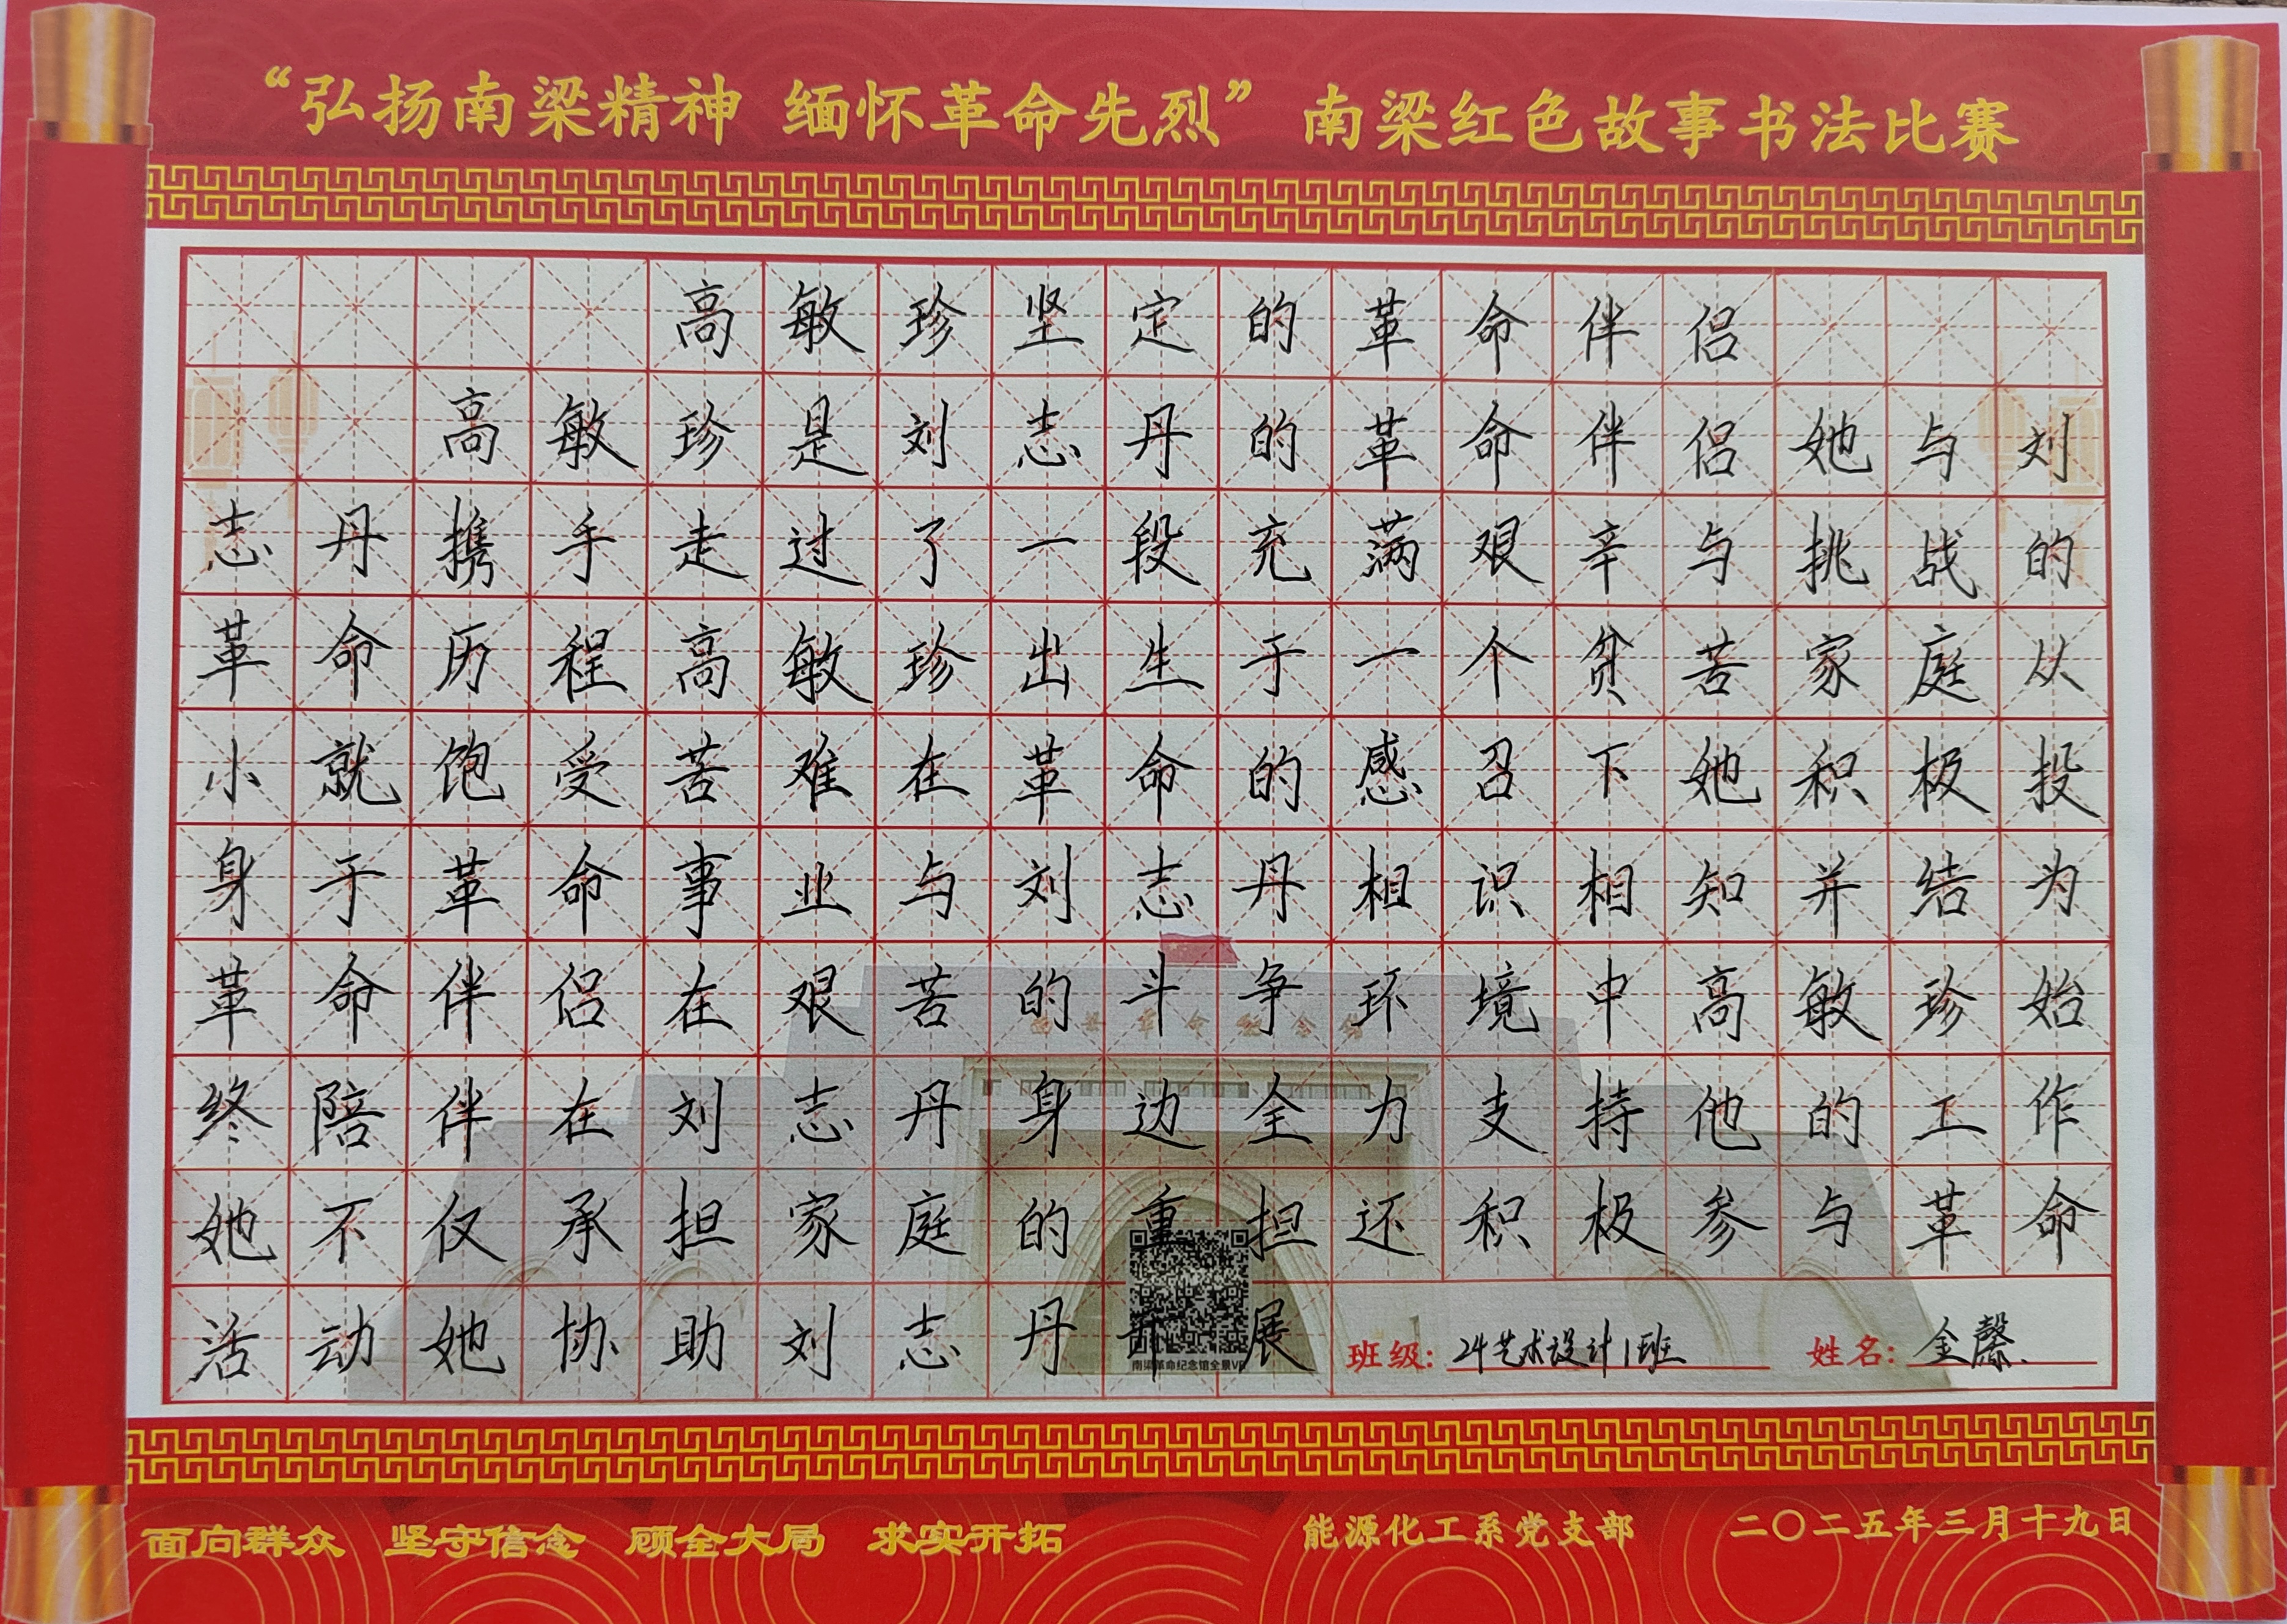 “弘扬南梁精神 缅怀革命先烈” 南梁红色故事书法比赛
高敏珍坚定的革命伴侣
高敏珍是刘志丹的革命伴侣她与刘
志丹携手走过了一段充满艰辛与挑战的
革命历程高敏珍出生于一个贫苦家庭从
小就饱受苦难在革命的感召下她积极投
身于革命事业与刘志丹相识相知并结为
革命伴侣在艰苦的斗争环境中高敏珍始
终陪伴在刘志丹身边全力支持他的工作
她不仅承担家庭的重担还积极参与革命
活动她协助刘志丹开展
南梁革命纪念馆
南梁革命纪念馆全景VR
班级: 24艺术设计1班 姓名: 金馨.
面向群众 坚守信念 顾全大局 求实开拓 能源化工系党支部 二〇二五年三月十九日